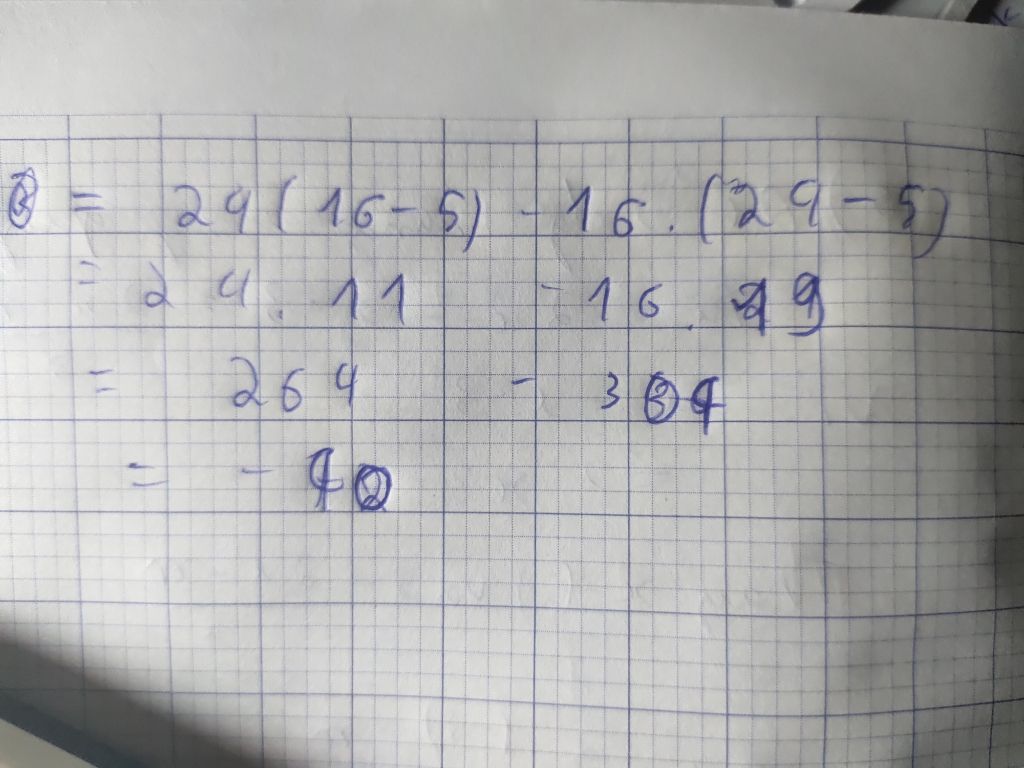 B = 24(16-5) - 16.(24-5)
= 24.11 - 16.19
= 264 - 304
= - 40